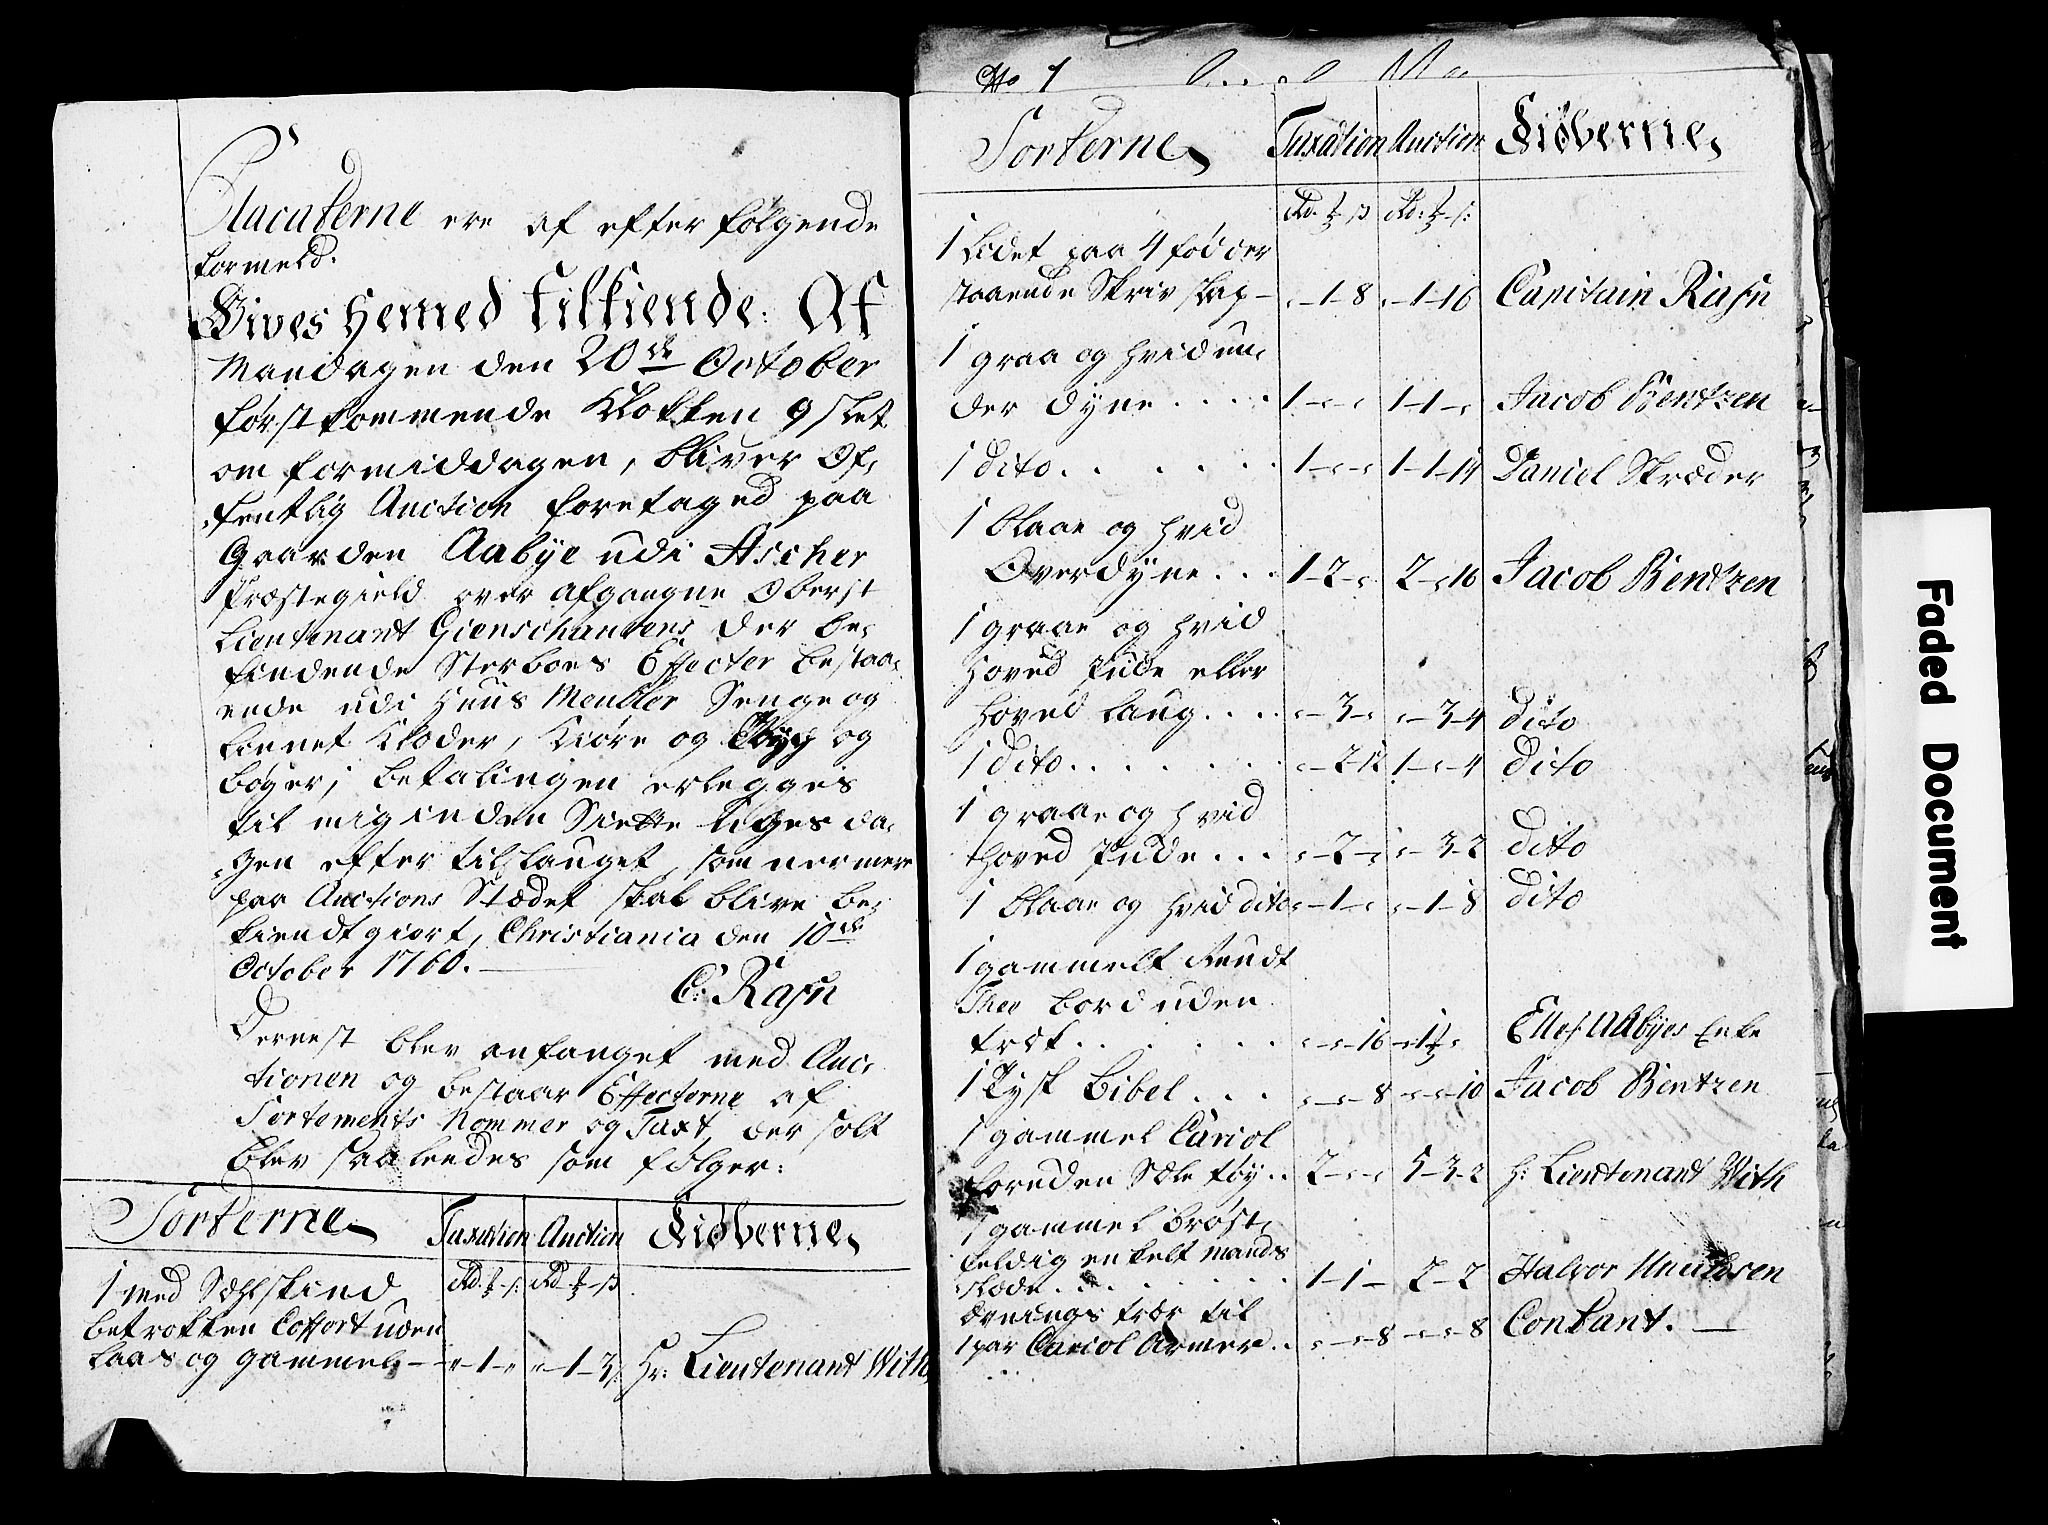 Placaterne ere af efter følgende
formeld.
Gives Hermed tilkiende: At
Mandagen den 20de October
førstkommende Klokken 9 slet
om formiddagen, bliver Of,
fentlig Auction foretaged paa
Gaarden Aabye udi Ascher
Præstegield over afgangne Oberst
Lieutenant Gienschautens der be,
findende Sterboes Effecter bestaa,
ende udi Huus Meubler Senge og
Linnet Klæder, Kiøre og og
bøger; betalingen erlegges
til mig inden Siette Uges da,
gen efter tilslauget, som nermere
paa Auctions Stædet skal blive be,
kiendtgiort, Christiania den 10de
October 1760.
C: Rasn
Dernest blev anfanget med Auc,
tionen og bestaar Effecterne af
Sortements Nommer og Taxt, der solt
blev saaledes som følger:
Sorterne Taxation Auction Kiøberne
Rd. ț - s: Rd. ț - s
1 med Sælskind
betrokken Coffort uden
laas og gammel - " - 1 - " " - 1 - 3 Hr: Lieutenant With
No 1
Sorterne Taxation Auction Kiøberne
Rd. ț - s Rd: ț - s:
1 Lidet paa 4 fødder
staaende Skriv skap - " - 1 - 8 " - 1 - 16 Capitain Rasn
1 graa og hvid un,
der dyne.... 1 - " - " 1 - 1 - " Jacob Bentzen
1 dito...... 1 - " - " 1 - 1 - 14 Daniel Skræder
1 blaae og hvid
Overdyne... 1 - 2 - " 2 - " 16 Jacob Bentzen
1 graae og hvid
hoved Pude eller
hoved laug.... " - 3 - " " - 3 - 4 dito
1 dito....... " - 2 - 12 1 - " - 4 dito
1 graae og hvid
hoved Pude... " - 2 - " " - 3 - 2 dito
1 blaae og hvid dito " - 1 - " " - 1 - 8 dito
1 gammelt Rundt
Thee bord uden
træt...... " - " - 16 Ellef Aabyes Enke
1 Tysk Bibel... " - " - 8 " - " - 10 Jacob Bentzen
1 gammel Cariol
foruden Sæle tøy.. 2 - " - " 5 - 3 - 2 H: Lieutenant With
1 gammel brøst,
feldig enkelt mands
slæde....... 1 - 1 - 2 - 2 Halvor Knudsen
ævnings træer til
1 par Cariol Armer.. " - " - 8 " - " - 8 Contant.
Faded Document